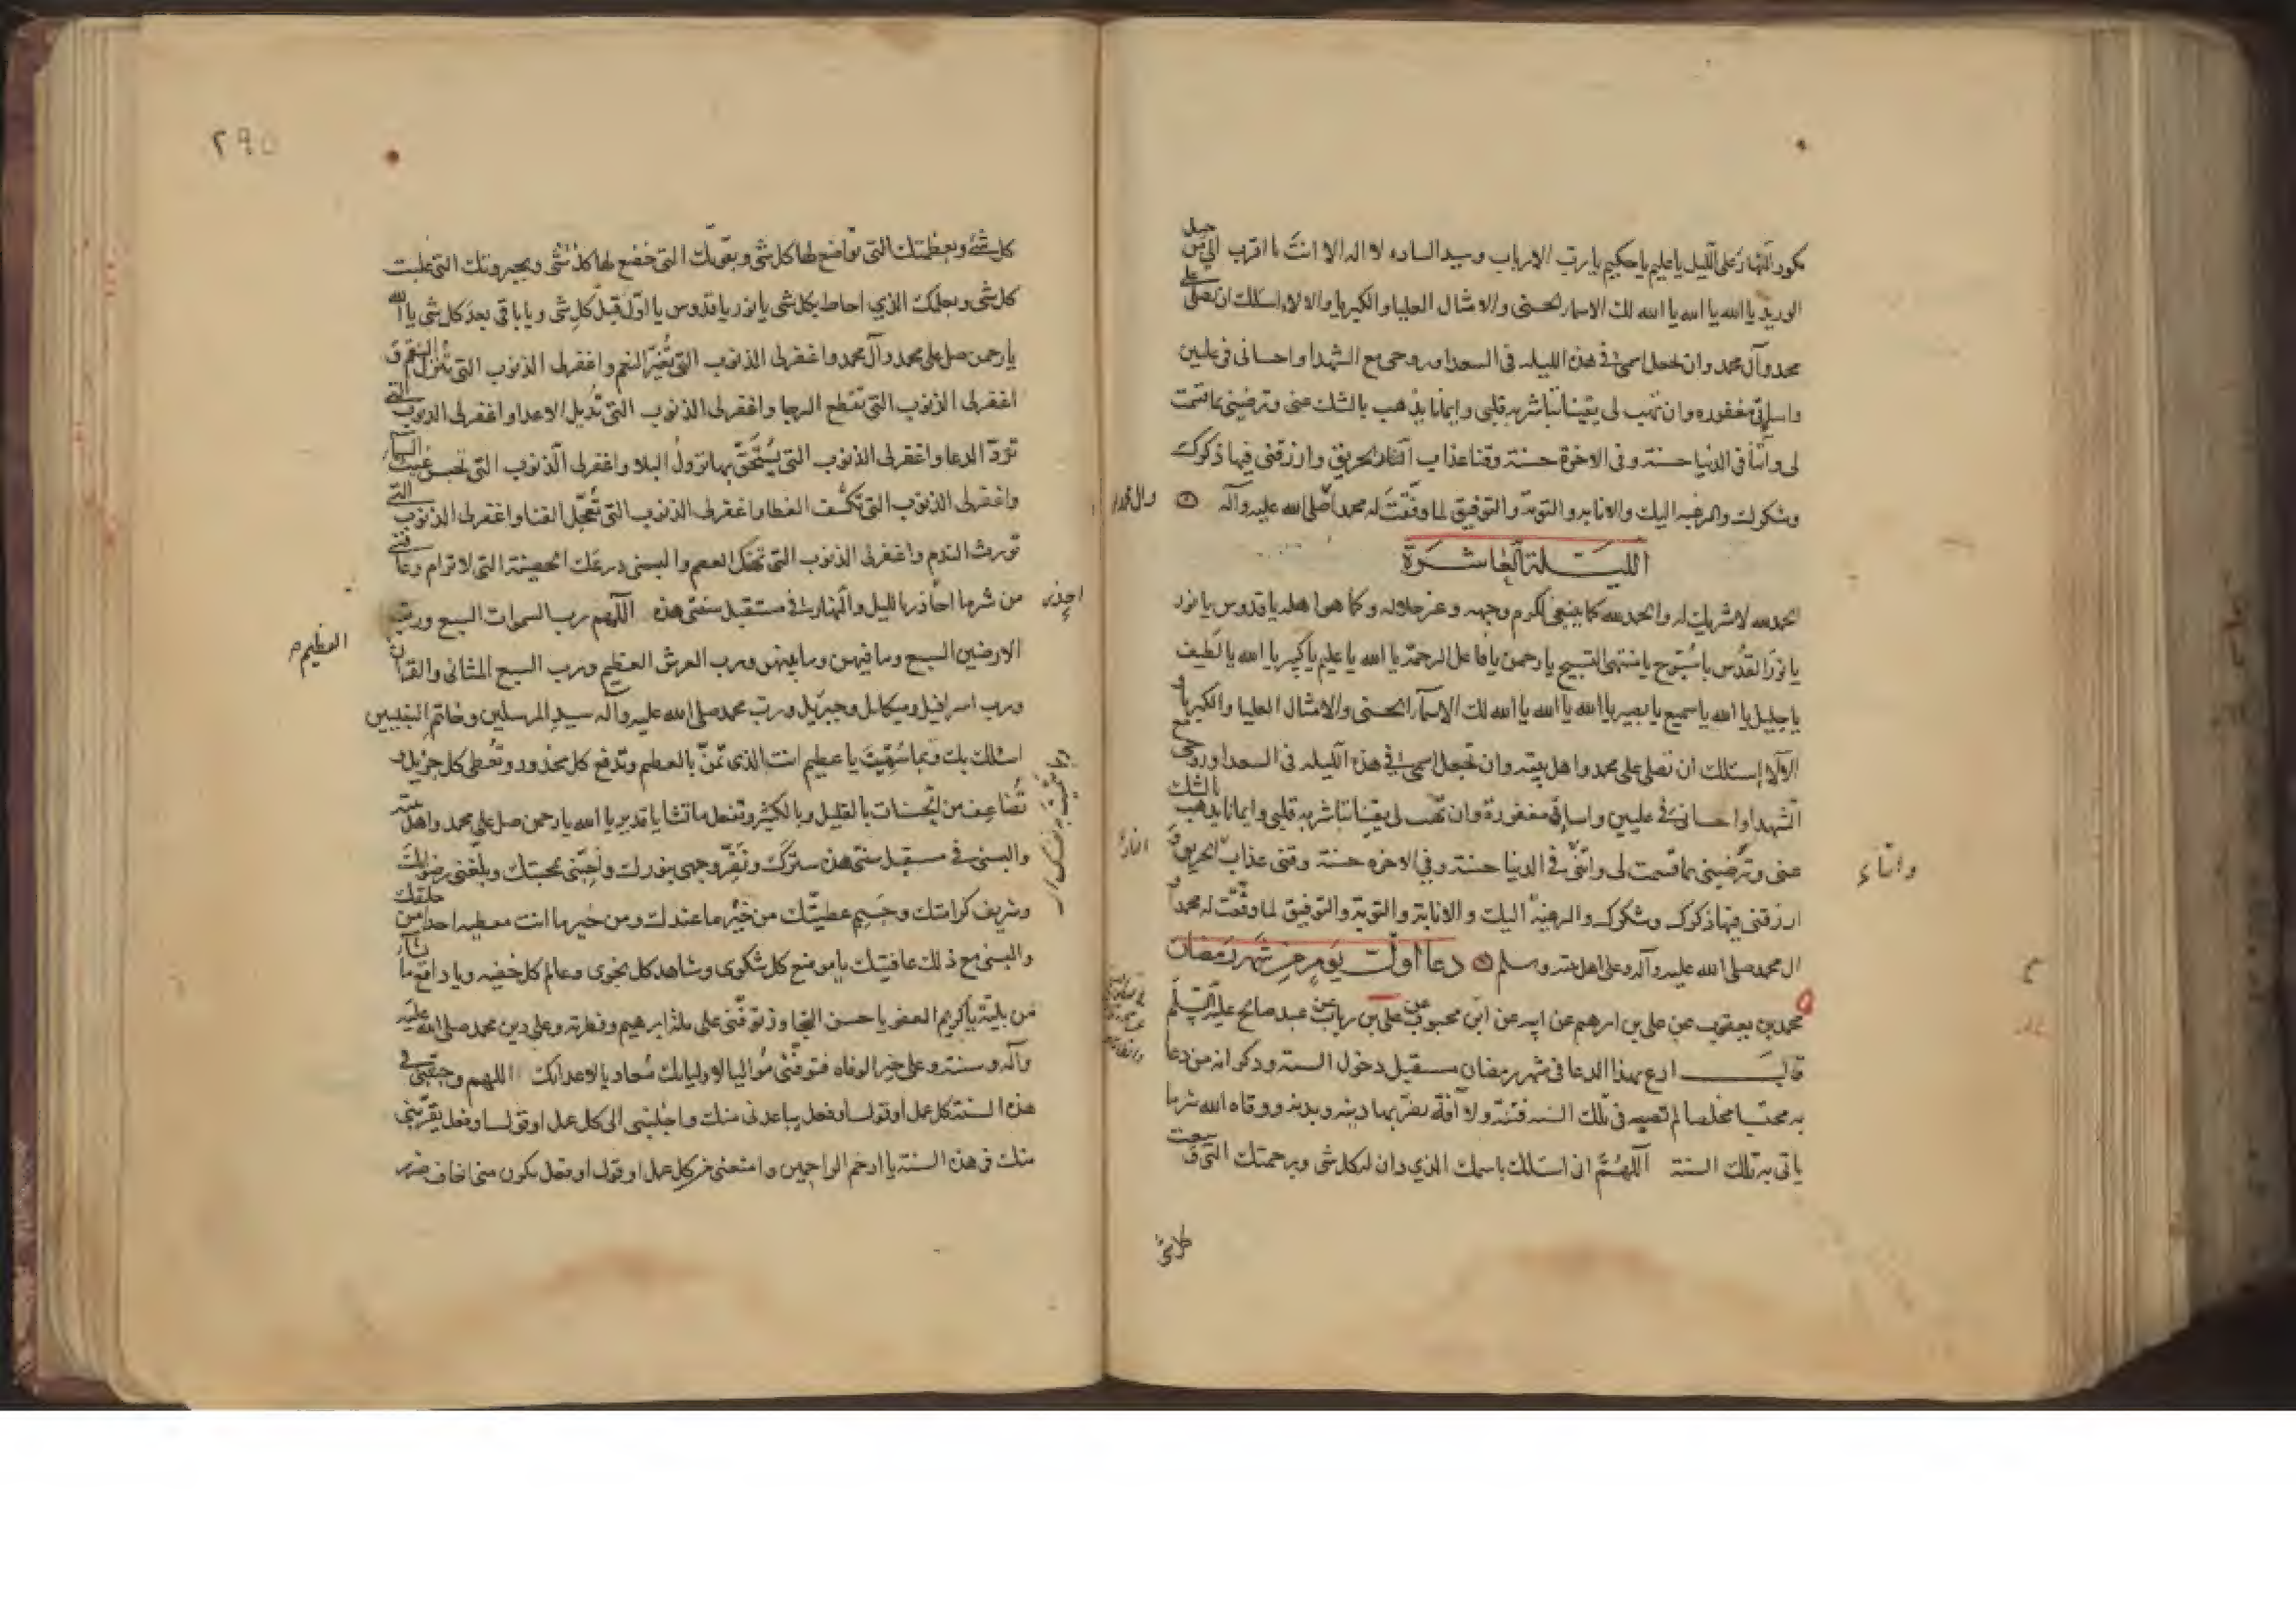 مكور النهار على الليل يا عليم يا حكيم يا رب الارباب وسيد الساده لا اله الا انت يا اقرب الى من حبل
الوريد يا الله يا الله يا الله لك الاسماء الحسنى والامثال العليا والكبريا والالاء اسئلك ان تصلى على
محمد وآل محمد وان تجعل اسمى فى هذه الليله فى السعدا وروحى مع الشهدا واحسانى فى عليين
واساءتى مغفوره وان تهب لى يقينا تباشر به قلبى وايمانا يذهب بالشك عنى وترضينى بما قسمت
لى وآتنا فى الدنيا حسنة وفى الاخرة حسنة وقنا عذاب النار الحريق وارزقنى فيها ذكرك
وشكرك والرغبه اليك والانابه والتوبة والتوفيق لما وفقت له محمدا صلى الله عليه وآله
وال محمد
الليلة العاشرة
الحمد لله لا شريك له والحمد لله كما ينبغى لكرم وجهه وعز جلاله وكما هو اهله يا قدوس يا نور
يا نور القدس يا سبوح يا منتهى التسبيح يا رحمن يا فاعل الرحمة يا الله يا عليم يا كبير يا الله يا لطيف
يا جليل يا الله يا سميع يا بصير يا الله يا الله يا الله لك الاسماء الحسنى والامثال العليا والكبرياء
والآلاء اسئلك ان تصلى على محمد واهل بيته وان تجعل اسمى فى هذه الليله فى السعدا وروحى مع
الشهدا واحسانى فى عليين واساءتى مغفورة وان تهب لى يقينا تباشر به قلبى وايمانا يذهب بالشك
عنى وترضينى بما قسمت لى وآتنى فى الدنيا حسنة وفى الاخره حسنة وقنى عذاب الحريق و
النار
وآتنا
ارزقنى فيها ذكرك وشكرك والرغبة اليك والانابة والتوبة والتوفيق لما وفقت له محمدا و
ال محمد صلى الله عليه وآله وعلى اهل بيته وسلم دعا اول يوم من شهر رمضان
محمد بن يعقوب عن على بن ابرهيم عن ابيه عن ابن محبوب عن على بن رياب عن عبد صالح عليه السلم
قال ادع بهذا الدعا فى شهر رمضان مستقبل دخول السنة وذكر انه من دعا
به محتسبا مخلصا لم تصبه فى تلك السنه فتنة ولا آفة يضر بها دينه وبدنه ووقاه الله شر ما
ياتى به تلك السنة اللهم انى اسئلك باسمك الذى دان له كل شى وبرحمتك التى وسعت
كل شئ
٢٩٥
كل شئ وبعظمتك التى تواضع لها كل شى وبقوتك التى خضع لها كل شى وبجبروتك التى غلبت
كل شى وبعلمك الذى احاط بكل شى يا نور يا قدوس يا اول قبل كل شى ويا باقى بعد كل شى يا الله
يا رحمن صل على محمد وآل محمد واغفر لى الذنوب التى تغير النعم واغفر لى الذنوب التى تنزل النقم و
اغفر لى الذنوب التى تقطع الرجا واغفر لى الذنوب التى تديل الاعدا واغفر لى الذنوب التى
ترد الدعا واغفر لى الذنوب التى يستحق بها نزول البلا واغفر لى الذنوب التى تحبس غيث السماء
واغفر لى الذنوب التى تكشف الغطا واغفر لى الذنوب التى تعجل الفنا واغفر لى الذنوب التى
تورث الندم واغفر لى الذنوب التى تهتك العصم والبسنى درعك الحصينة التى لا ترام وعافنى
من شر ما احاذر بالليل والنهار فى مستقبل سنتى هذه اللهم رب السموات السبع ورب
الارضين السبع وما فيهن وما بينهن ورب العرش العظيم ورب السبع المثانى والقرآن
العظيم
ورب اسرافيل وميكايل وجبرئيل ورب محمد صلى الله عليه وآله سيد المرسلين وخاتم النبيين
اسئلك بك وبما سميت يا عظيم انت الذى تمن بالعظيم وتدفع كل محذور وتعطى كل جزيل و
تضاعف من الحسنات بالقليل وبالكثير وتفعل ما تشا يا قدير يا الله يا رحمن صل على محمد واهل بيته
والبسنى فى مستقبل سنتى هذه سترك ونضر وجهى بنورك واحبنى بمحبتك وبلغنى رضوانك
وشريف كرامتك وجسيم عطيتك من خير ما عندك ومن خير ما انت معطيه احدا من خلقك
والبسنى مع ذلك عافيتك يا موضع كل شكوى وشاهد كل نجوى وعالم كل خفيه ويا دافع ما تشاء
من بلية يا كريم العفو يا حسن التجاوز توفنى على ملة ابرهيم وفطرته وعلى دين محمد صلى الله عليه
وآله وسنته وعلى خير الوفاه فتوفنى مواليا لاوليائك معاديا لاعدائك اللهم وجنبنى فى
هذه السنة كل عمل او قول او فعل يباعدنى منك واجلبنى الى كل عمل او قول او فعل يقربنى
منك فى هذه السنة يا ارحم الراحمين وامنعنى من كل عمل او قول او فعل يكون منى اخاف ضرر